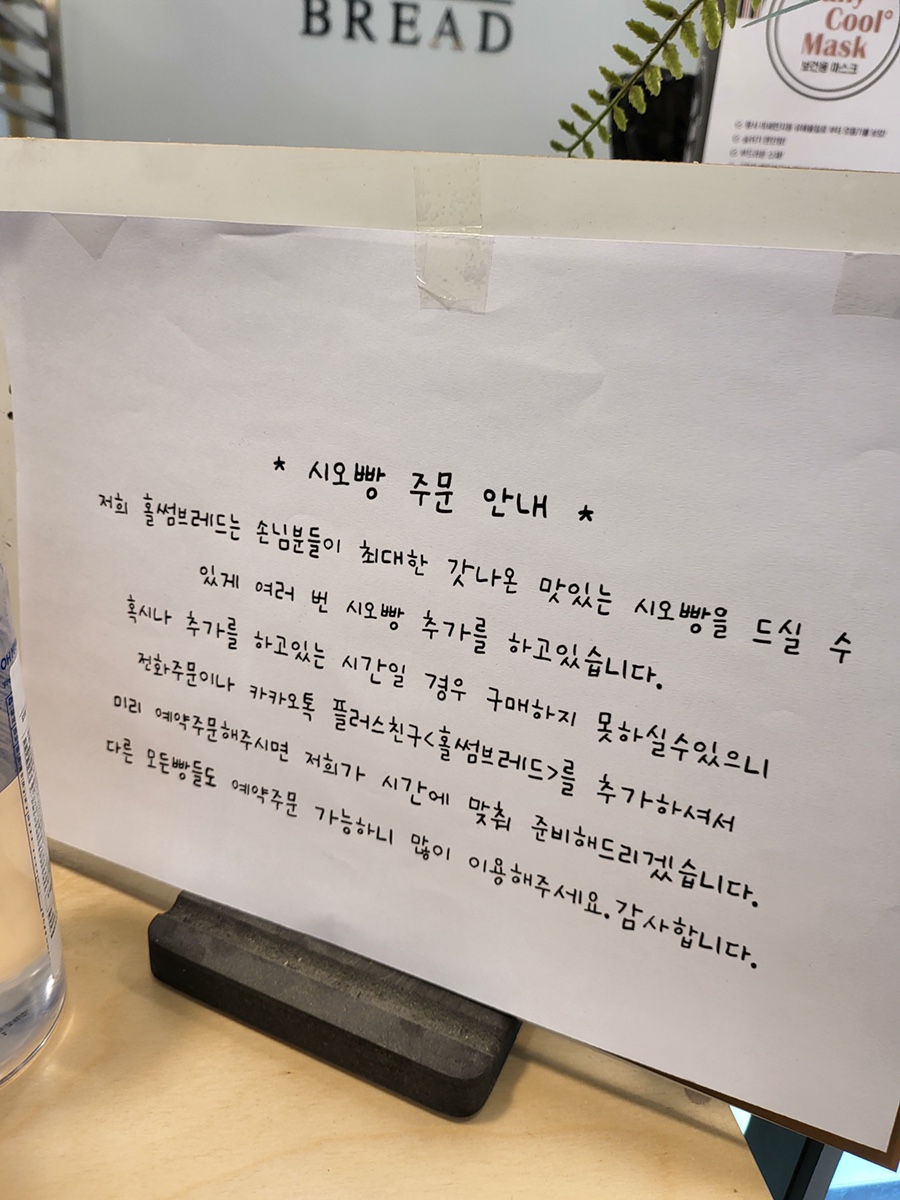 BREAD
Cool°
Mask
보건용 마스크
* 시오빵 주문 안내 *
저희 홀썸브레드는 손님분들이 최대한 갓나온 맛있는 시오빵을 드실 수
있게 여러 번 시오빵 추가를 하고있습니다.
혹시나 추가를 하고있는 시간일 경우 구매하지 못하실수있으니
전화주문이나 카카오톡 플러스친구<홀썸브레드>를 추가하셔서
미리 예약주문해주시면 저희가 시간에 맞춰 준비해드리겠습니다.
다른 모든빵들도 예약주문 가능하니 많이 이용해주세요.감사합니다.